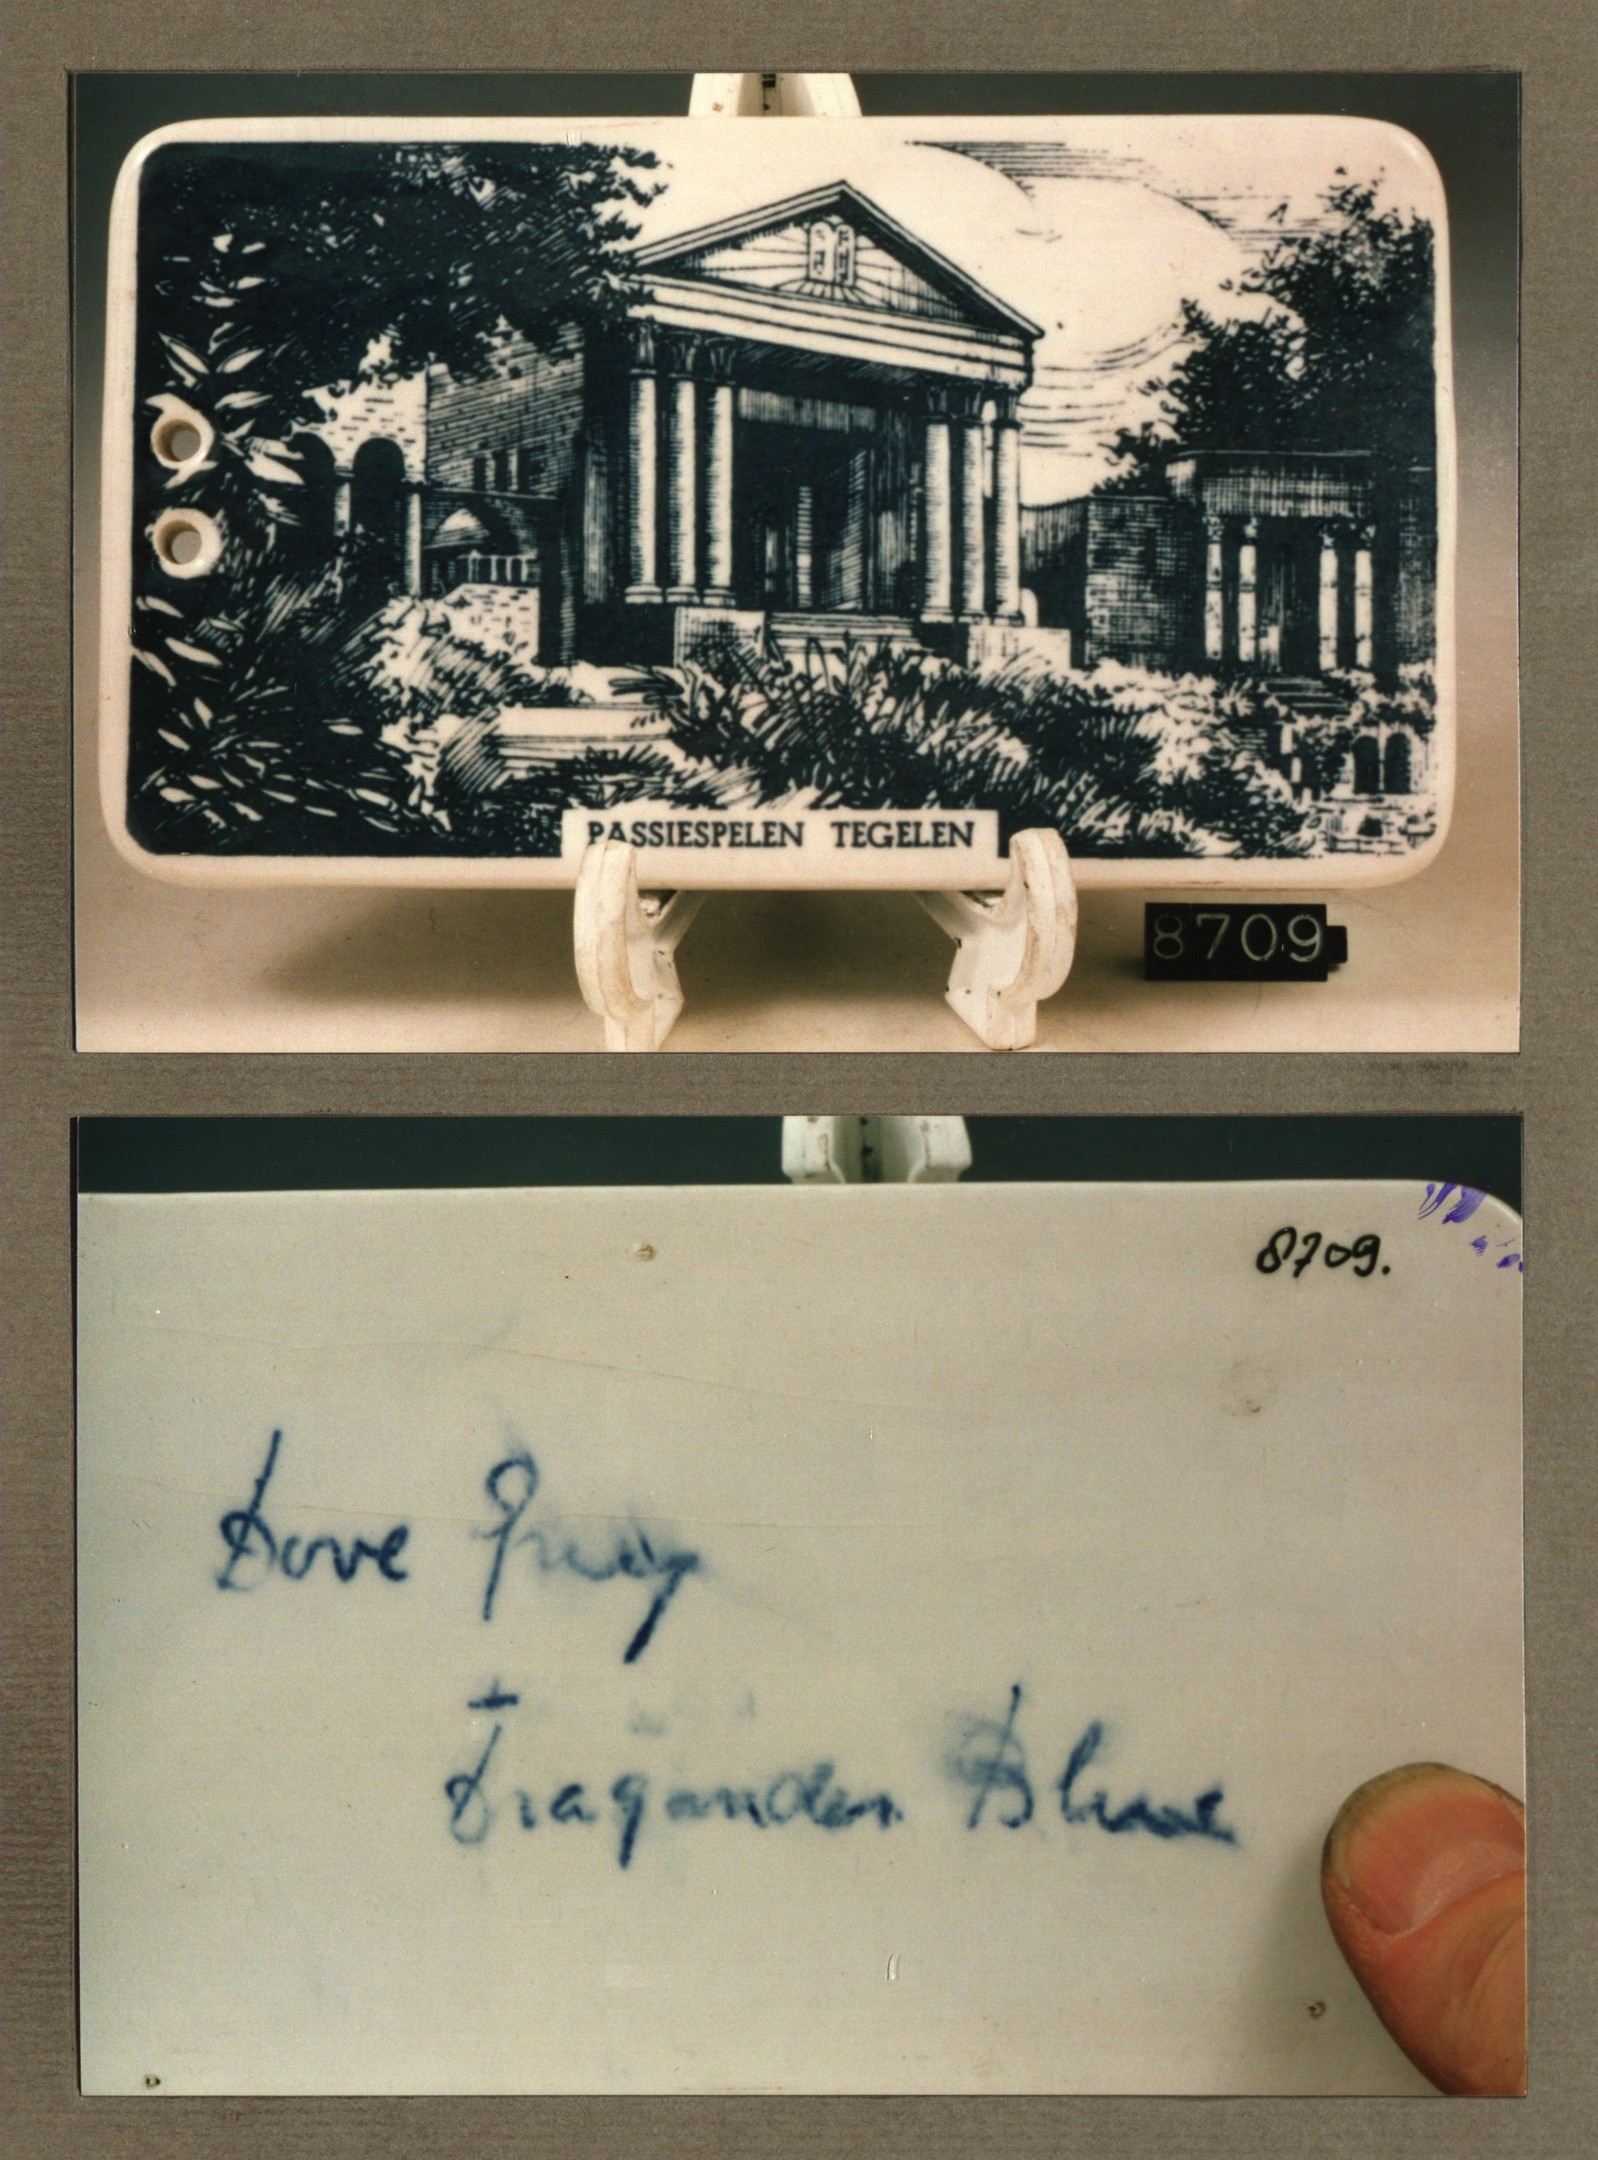 PASSIESPELEN TEGELEN
8709
8709.
Dove Grey
Blue